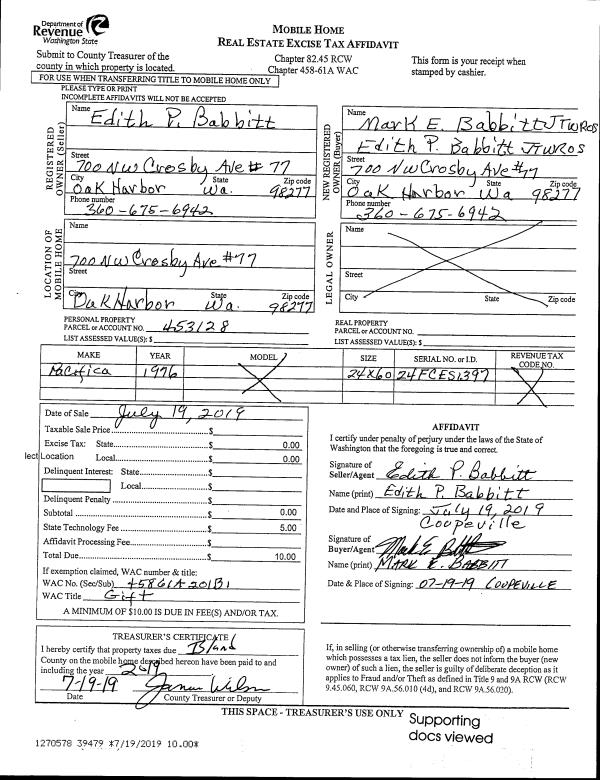 Department of
Revenue
Washington State
MOBILE HOME
REAL ESTATE EXCISE TAX AFFIDAVIT
Submit to County Treasurer of the
county in which property is located.
Chapter 82.45 RCW
Chapter 458-61A WAC
This form is your receipt when
stamped by cashier.
FOR USE WHEN TRANSFERRING TITLE TO MOBILE HOME ONLY
PLEASE TYPE OR PRINT
INCOMPLETE AFFIDAVITS WILL NOT BE ACCEPTED
REGISTERED
OWNER (Seller)
Name Edith P. Babbitt
Street 700 NW Crosby Ave # 77
City State Zip code
Oak Harbor Wa. 98277
Phone number
360-675-6942
NEW REGISTERED
OWNER (Buyer)
Name Mark E. Babbitt JTWROS
Edith P. Babbitt JTWROS
Street 700 NW Crosby Ave #77
City State Zip code
Oak Harbor Wa 98277
Phone number
360-675-6942
LOCATION OF
MOBILE HOME
Name
700 NW Crosby Ave #77
Street
City State Zip code
Oak Harbor Wa. 98277
LEGAL OWNER
Name
Street
City State Zip code
PERSONAL PROPERTY
PARCEL or ACCOUNT NO. 453128
LIST ASSESSED VALUE(S): $
REAL PROPERTY
PARCEL or ACCOUNT NO.
LIST ASSESSED VALUE(S): $
MAKE YEAR MODEL SIZE SERIAL NO. or I.D. REVENUE TAX CODE NO.
Pacifica 1976 24x60 24FCES1397
Date of Sale July 19, 2019
Taxable Sale Price $
Excise Tax: State $ 0.00
lect Location Local $ 0.00
Delinquent Interest: State $
Local $
Delinquent Penalty $
Subtotal $ 0.00
State Technology Fee $ 5.00
Affidavit Processing Fee $
Total Due $ 10.00
If exemption claimed, WAC number & title:
WAC No. (Sec/Sub) 45861A201B1
WAC Title Gift
A MINIMUM OF $10.00 IS DUE IN FEE(S) AND/OR TAX.
AFFIDAVIT
I certify under penalty of perjury under the laws of the State of
Washington that the foregoing is true and correct.
Signature of
Seller/Agent Edith P. Babbitt
Name (print) Edith P. Babbitt
Date and Place of Signing: July 19, 2019
Coupeville
Signature of
Buyer/Agent Mark E Babbitt
Name (print) MARK E. BABBITT
Date & Place of Signing: 07-19-19 COUPEVILLE
TREASURER'S CERTIFICATE
I hereby certify that property taxes due Island
County on the mobile home described hereon have been paid to and
including the year 2019
7-19-19
Date County Treasurer or Deputy
If, in selling (or otherwise transferring ownership of) a mobile home
which possesses a tax lien, the seller does not inform the buyer (new
owner) of such a lien, the seller is guilty of deliberate deception as it
applies to Fraud and/or Theft as defined in Title 9 and 9A RCW (RCW
9.45.060, RCW 9A.56.010 (4d), and RCW 9A.56.020).
THIS SPACE - TREASURER'S USE ONLY
Supporting
docs viewed
1270578 39479 *7/19/2019 10.00*